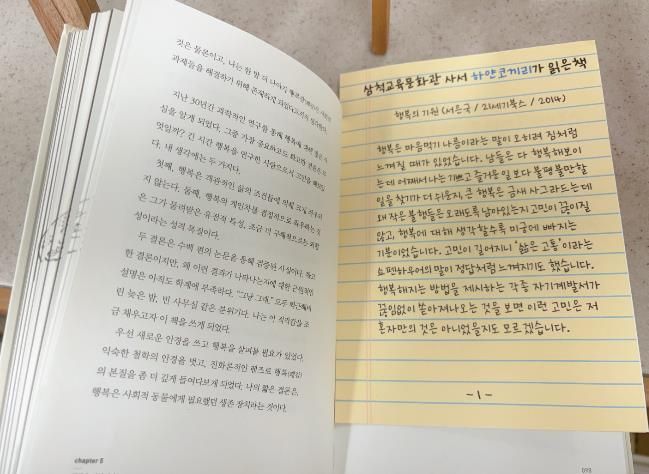 것은 물론이고, 나는 한 발 더 나아가
과제들을 해결하기 위해 존재하게 되었다고까지 생각한다.
지난 30년간 과학적인 연구를 통해 행복에 대한 많은 사
실을 알게 되었다. 그중 가장 중요하고도 확고한 결론은 무
엇일까? 긴 시간 행복을 연구한 사람으로서 고민을 해보았
다. 내 생각에는 두 가지다.
첫째, 행복은 객관적인 삶의 조건들에 의해 크게 좌우되
지 않는다. 둘째, 행복의 개인차를 결정적으로 좌우하는 것
은 그가 물려받은 유전적 특성, 조금 더 구체적으로는 외향
성이라는 성격 특질이다.
두 결론은 수백 편의 논문을 통해 검증된 사실이다. 확고
한 결론이지만, 왜 이런 결과가 나타나는지에 대한 근원적인
설명은 아직도 학계에 부족하다. "그냥 그래." 모두 퇴근해버
린 늦은 밤, 빈 사무실 같은 분위기다. 나는 이 적막감을 조
금 채우고자 이 책을 쓰게 되었다.
우선 새로운 안경을 쓰고 행복을 살펴볼 필요가 있었다.
익숙한 철학의 안경을 벗고, 진화론적인 렌즈로 행복(쾌감)
의 본질을 좀 더 깊게 들여다보게 되었다. 나의 짧은 결론은,
행복은 사회적 동물에게 필요했던 생존 장치라는 것이다.
chapter 5
삼척교육문화관 사서 하얀코끼리가 읽은책
행복의 기원 (서은국 / 21세기북스 / 2014)
행복은 마음먹기 나름이라는 말이 오히려 짐처럼
느껴질 때가 있었습니다. 남들은 다 행복해보이
는데 어째서 나는 기쁘고 즐거운 일보다 불평불만할
일을 찾기가 더 쉬운지, 큰 행복은 금새 사그라드는데
왜 작은 불행들은 오래도록 남아있는지 고민이 끊이질
않고, 행복에 대해 생각할수록 미궁에 빠지는
기분이었습니다. 고민이 길어지니 '삶은 고통'이라는
쇼펜하우어의 말이 정답처럼 느껴지기도 했습니다.
행복해지는 방법을 제시하는 각종 자기계발서가
끊임없이 쏟아져나오는 것을 보면 이런 고민은 저
혼자만의 것은 아니었을지도 모르겠습니다.
-1-
093